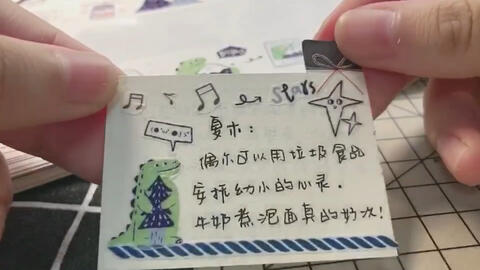 stars
夏木：
偶尔可以用垃圾食品
安抚幼小的心灵．
牛奶煮泥面真的好次！